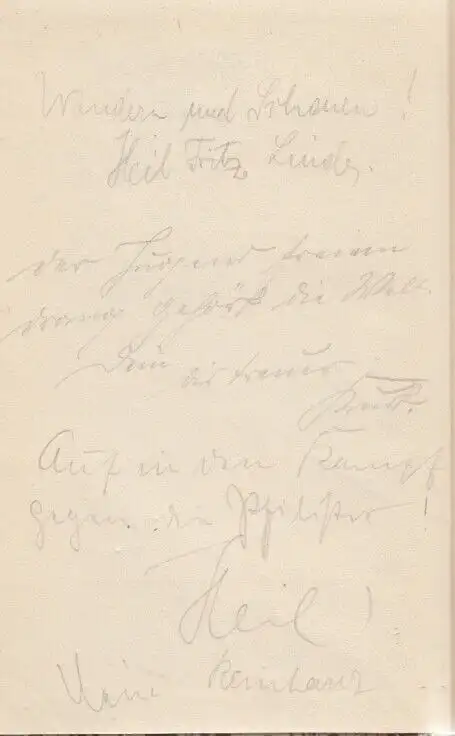 Wandern und Schauen!
Heil Fritz Linde.
der Jugend
gehört die Welt.
Dein
Auf in den Kampf
gegen die Philister!
Heil!
Reinhard